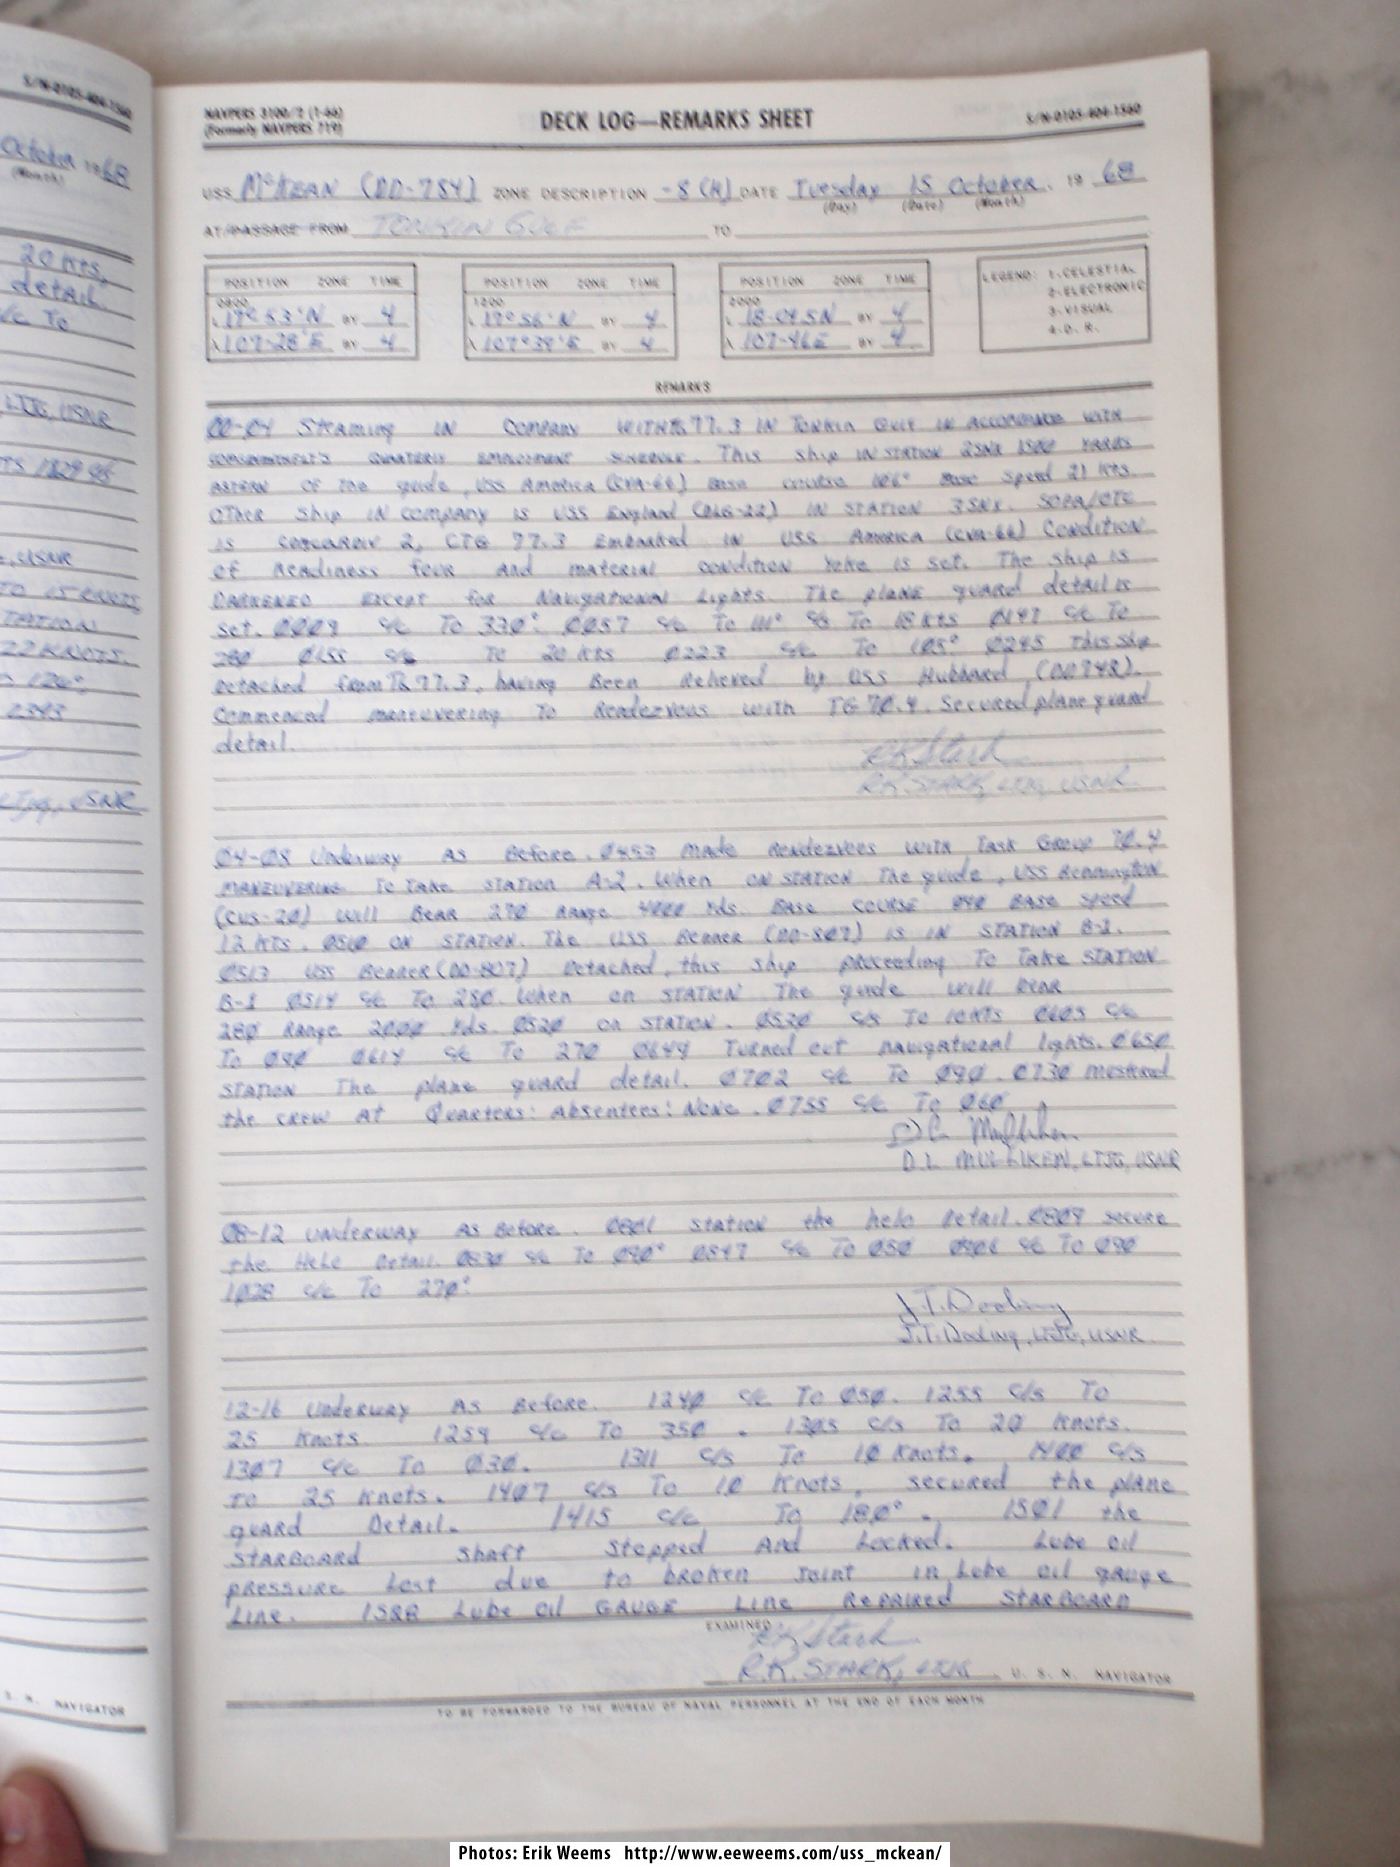 S/N-0105-404-1560
October 1968
(Month)
20 kts,
detail.
c/c To
LTJG, USNR
USNR
TO 15 KNOTS
STATION
22 KNOTS.
120°,
2343
Ltjg, USNR
S. N. NAVIGATOR
NAVPERS 3100/2 (1-66)
(Formerly NAVPERS 719)
DECK LOG—REMARKS SHEET
S/N-0105-404-1560
USS McKEAN (DD-784) ZONE DESCRIPTION -8 (H) DATE Tuesday 15 October, 19 68
(Day) (Date) (Month)
AT/PASSAGE FROM TONKIN GULF TO
POSITION ZONE TIME
0800
L 17° 53'N BY 4
λ 107-28'E BY 4
POSITION ZONE TIME
1200
L 17° 56'N BY 4
λ 107°39'E BY 4
POSITION ZONE TIME
2000
L 18-04.5N BY 4
λ 107-46E BY 4
LEGEND: 1-CELESTIAL
2-ELECTRONIC
3-VISUAL
4-D. R.
REMARKS
00-04 Steaming in Company with TG 77.3 in Tonkin Gulf in accordance with
quarterly employment schedule. This ship in station 2SNX 1500 yards
astern of the guide, USS America (CVA-66) Base course 106° Base speed 21 kts.
Other ship in company is USS England (DLG-22) in station 3SNX. SOPA/OTC
is ComCarDiv 2, CTG 77.3 Embarked in USS America (CVA-66) Condition
of Readiness four and material condition Yoke is set. The ship is
Darkened except for Navigational Lights. The plane guard detail is
set. 0009 c/c To 330°. 0057 c/c To 111° c/s To 18 kts 0147 c/c To
280 0155 c/s To 20 kts 0223 c/c To 105° 0245 This ship
Detached from TG 77.3, having Been Relieved by USS Hubbard (DD748).
Commenced maneuvering To Rendezvous with TG 70.4. Secured plane guard
detail.
RK Stark
RK STARK, LTJG, USNR
04-08 Underway As Before. 0453 made Rendezvees with Task Group 70.4
maneuvering To Take station A-2. When on station The guide, USS Bennington
(CVS-20) will Bear 270 Range 4000 Yds. Base course 090 Base speed
12 kts. 0510 on station. The USS Benner (DD-807) is in station B-1.
0513 USS Benner (DD-807) Detached, this ship proceeding To Take station
B-1 0514 c/c To 280. When on station The guide will bear
280 Range 2000 Yds. 0520 on station. 0530 c/s To 10 kts 0603 c/c
To 090 0614 c/c To 270 0649 Turned out navigational lights. 0650
station The plane guard detail. 0702 c/c To 090. 0730 mustered
the crew At Quarters: Absentees: None. 0755 c/c To 060
D L Mulliken
D. L. MULLIKEN, LTJG, USNR
08-12 Underway As Before. 0801 station the helo detail. 0809 secure
the Helo Detail. 0830 c/c To 090° 0847 c/c To 050 0906 c/c To 090
1028 c/c To 270°
J.T. Doding
J.T. Doding, LTJG, USNR
12-16 Underway As Before. 1240 c/c To 050. 1255 c/s To
25 Knots. 1259 c/c To 350. 1305 c/s To 20 Knots.
1307 c/c To 030. 1311 c/s To 10 Knots. 1400 c/s
to 25 Knots. 1407 c/s To 10 Knots, secured the plane
guard Detail. 1415 c/c To 180°. 1501 the
STARBOARD shaft Stopped And Locked. Lube oil
pressure lost due to broken Joint in Lube oil gauge
Line. 1508 Lube Oil GAUGE Line Repaired STARBOARD
EXAMINED
RK Stark
R.K. STARK, LTJG, U. S. N. NAVIGATOR
TO BE FORWARDED TO THE BUREAU OF NAVAL PERSONNEL AT THE END OF EACH MONTH
Photos: Erik Weems http://www.eeweems.com/uss_mckean/